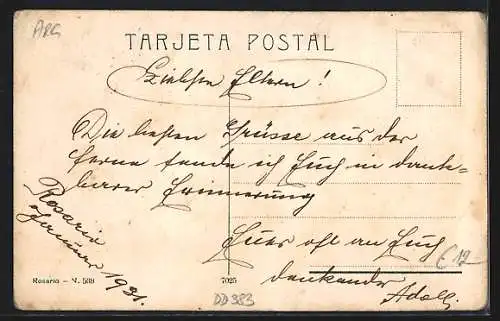 ARG
TARJETA POSTAL
Liebste Eltern!
Die besten Grüsse aus der
Ferne sende ich Euch in dank=
barer Erinnerung
Euer oft an Euch
denkender Adolf.
Rosario
Januar 1931.
€ 12
Rosario – N. 508
7025
DD383